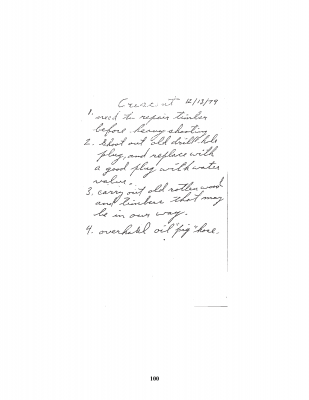 Crescent 12/13/79
1. need to repair timber
before heavy shooting
2. Shoot out old drill hole
plug, and replace with
a good plug with water
valve.
3. carry out old rotten wood
and timbers that may
be in our way.
4. overhaul oil "pig" hose.
100